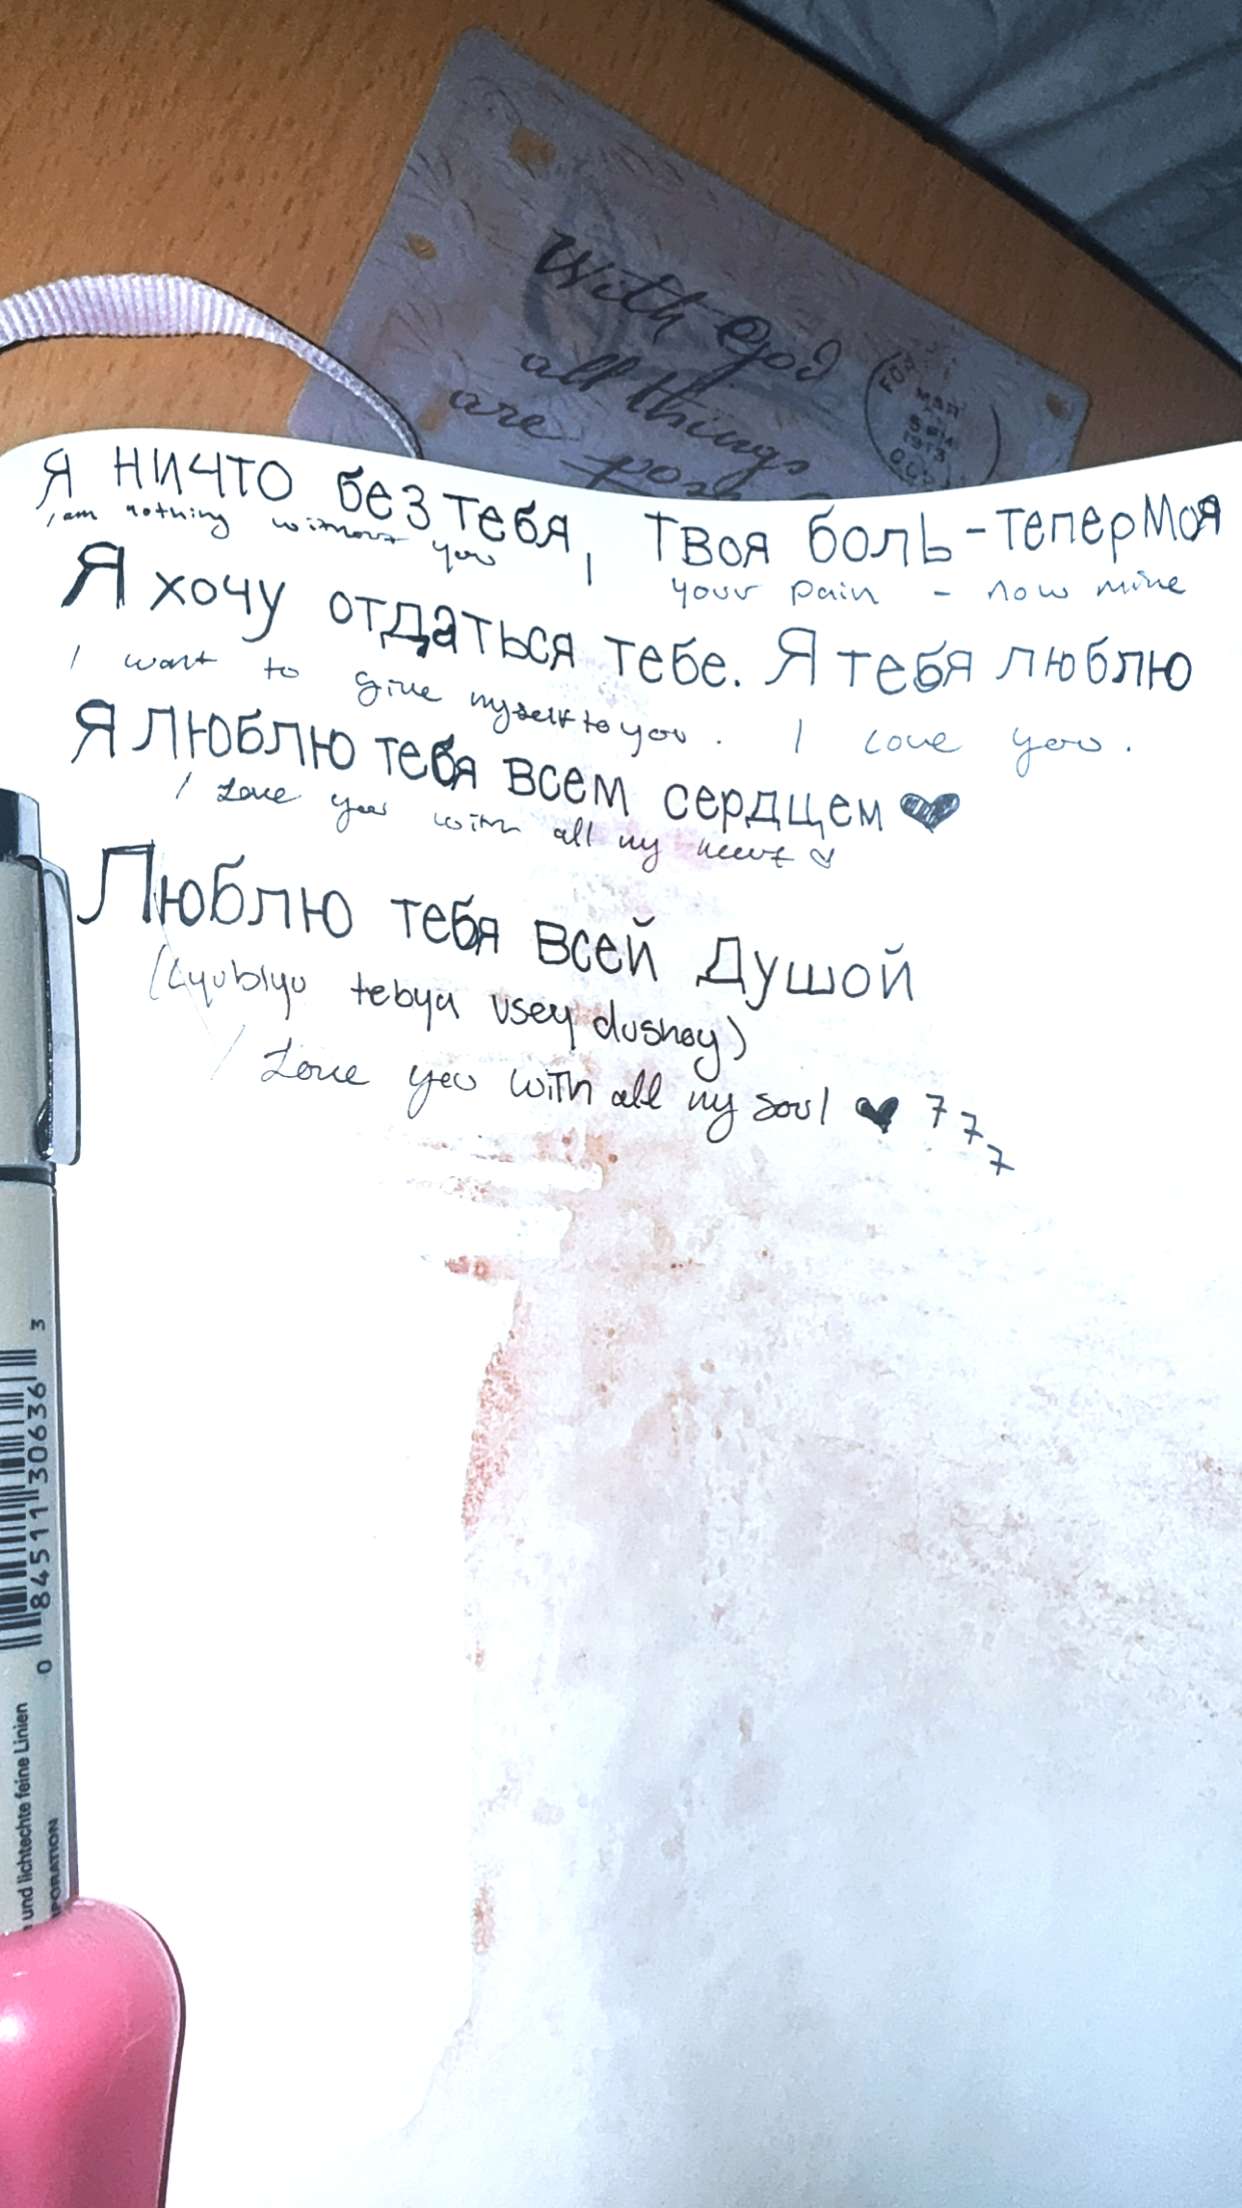 With God
all things
are
Я ничто без тебя, Твоя боль - тепер моя
I am nothing without you your pain - now mine
Я хочу отдаться тебе. Я тебя люблю
I want to give myself to you. I love you.
Я люблю тебя всем сердцем ♥
I Love you with all my heart ♡
Люблю тебя всей душой
(Lyublyu tebya vsey dushoy)
I Love you with all my soul ♥ 777
0 84511 30636 3
und lichtechte feine Linien